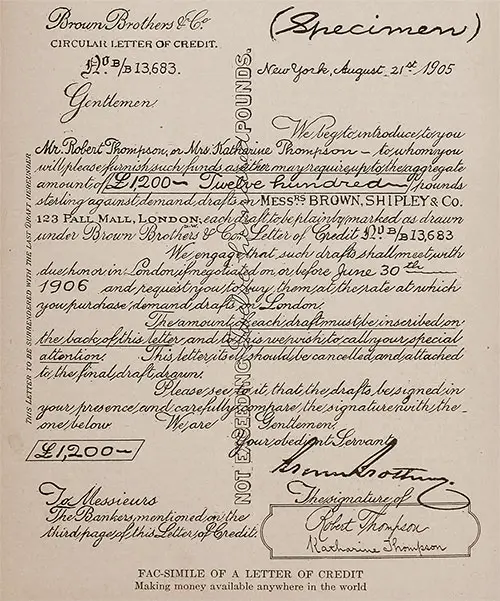 Brown Brothers & Co
(Specimen)
CIRCULAR LETTER OF CREDIT.
No B/B 13,683.
New York, August 21st 1905
Gentlemen
We beg to introduce to you
Mr. Robert Thompson, or Mrs. Katharine Thompson — to whom you
will please furnish such funds as either may require up to the aggregate
amount of £1200— Twelve hundred— pounds
sterling against demand drafts on MESSRS BROWN, SHIPLEY & CO.
123 PALL MALL, LONDON, each draft to be plainly marked as drawn
under Brown Brothers & Co. Letter of Credit No B/B 13,683
We engage that such drafts shall meet with
due honor in London if negotiated on or before June 30th
1906 and request you to buy them at the rate at which
you purchase demand drafts on London.
The amount of each draft must be inscribed on
the back of this letter and to this we wish to call your special
attention. This letter itself should be cancelled and attached
to the final draft drawn.
Please see to it, that the drafts be signed in
your presence and carefully compare the signature with the
one below We are Gentlemen.
Your obedient Servants
£1,200—
Brown Brothers
To Messieurs
The Bankers mentioned on the
third page of this Letter of Credit.
The signature of
Robert Thompson
Katharine Thompson
THIS LETTER TO BE SURRENDERED WITH THE LAST DRAFT HEREUNDER
NOT EXCEEDING POUNDS.
FAC-SIMILE OF A LETTER OF CREDIT
Making money available anywhere in the world